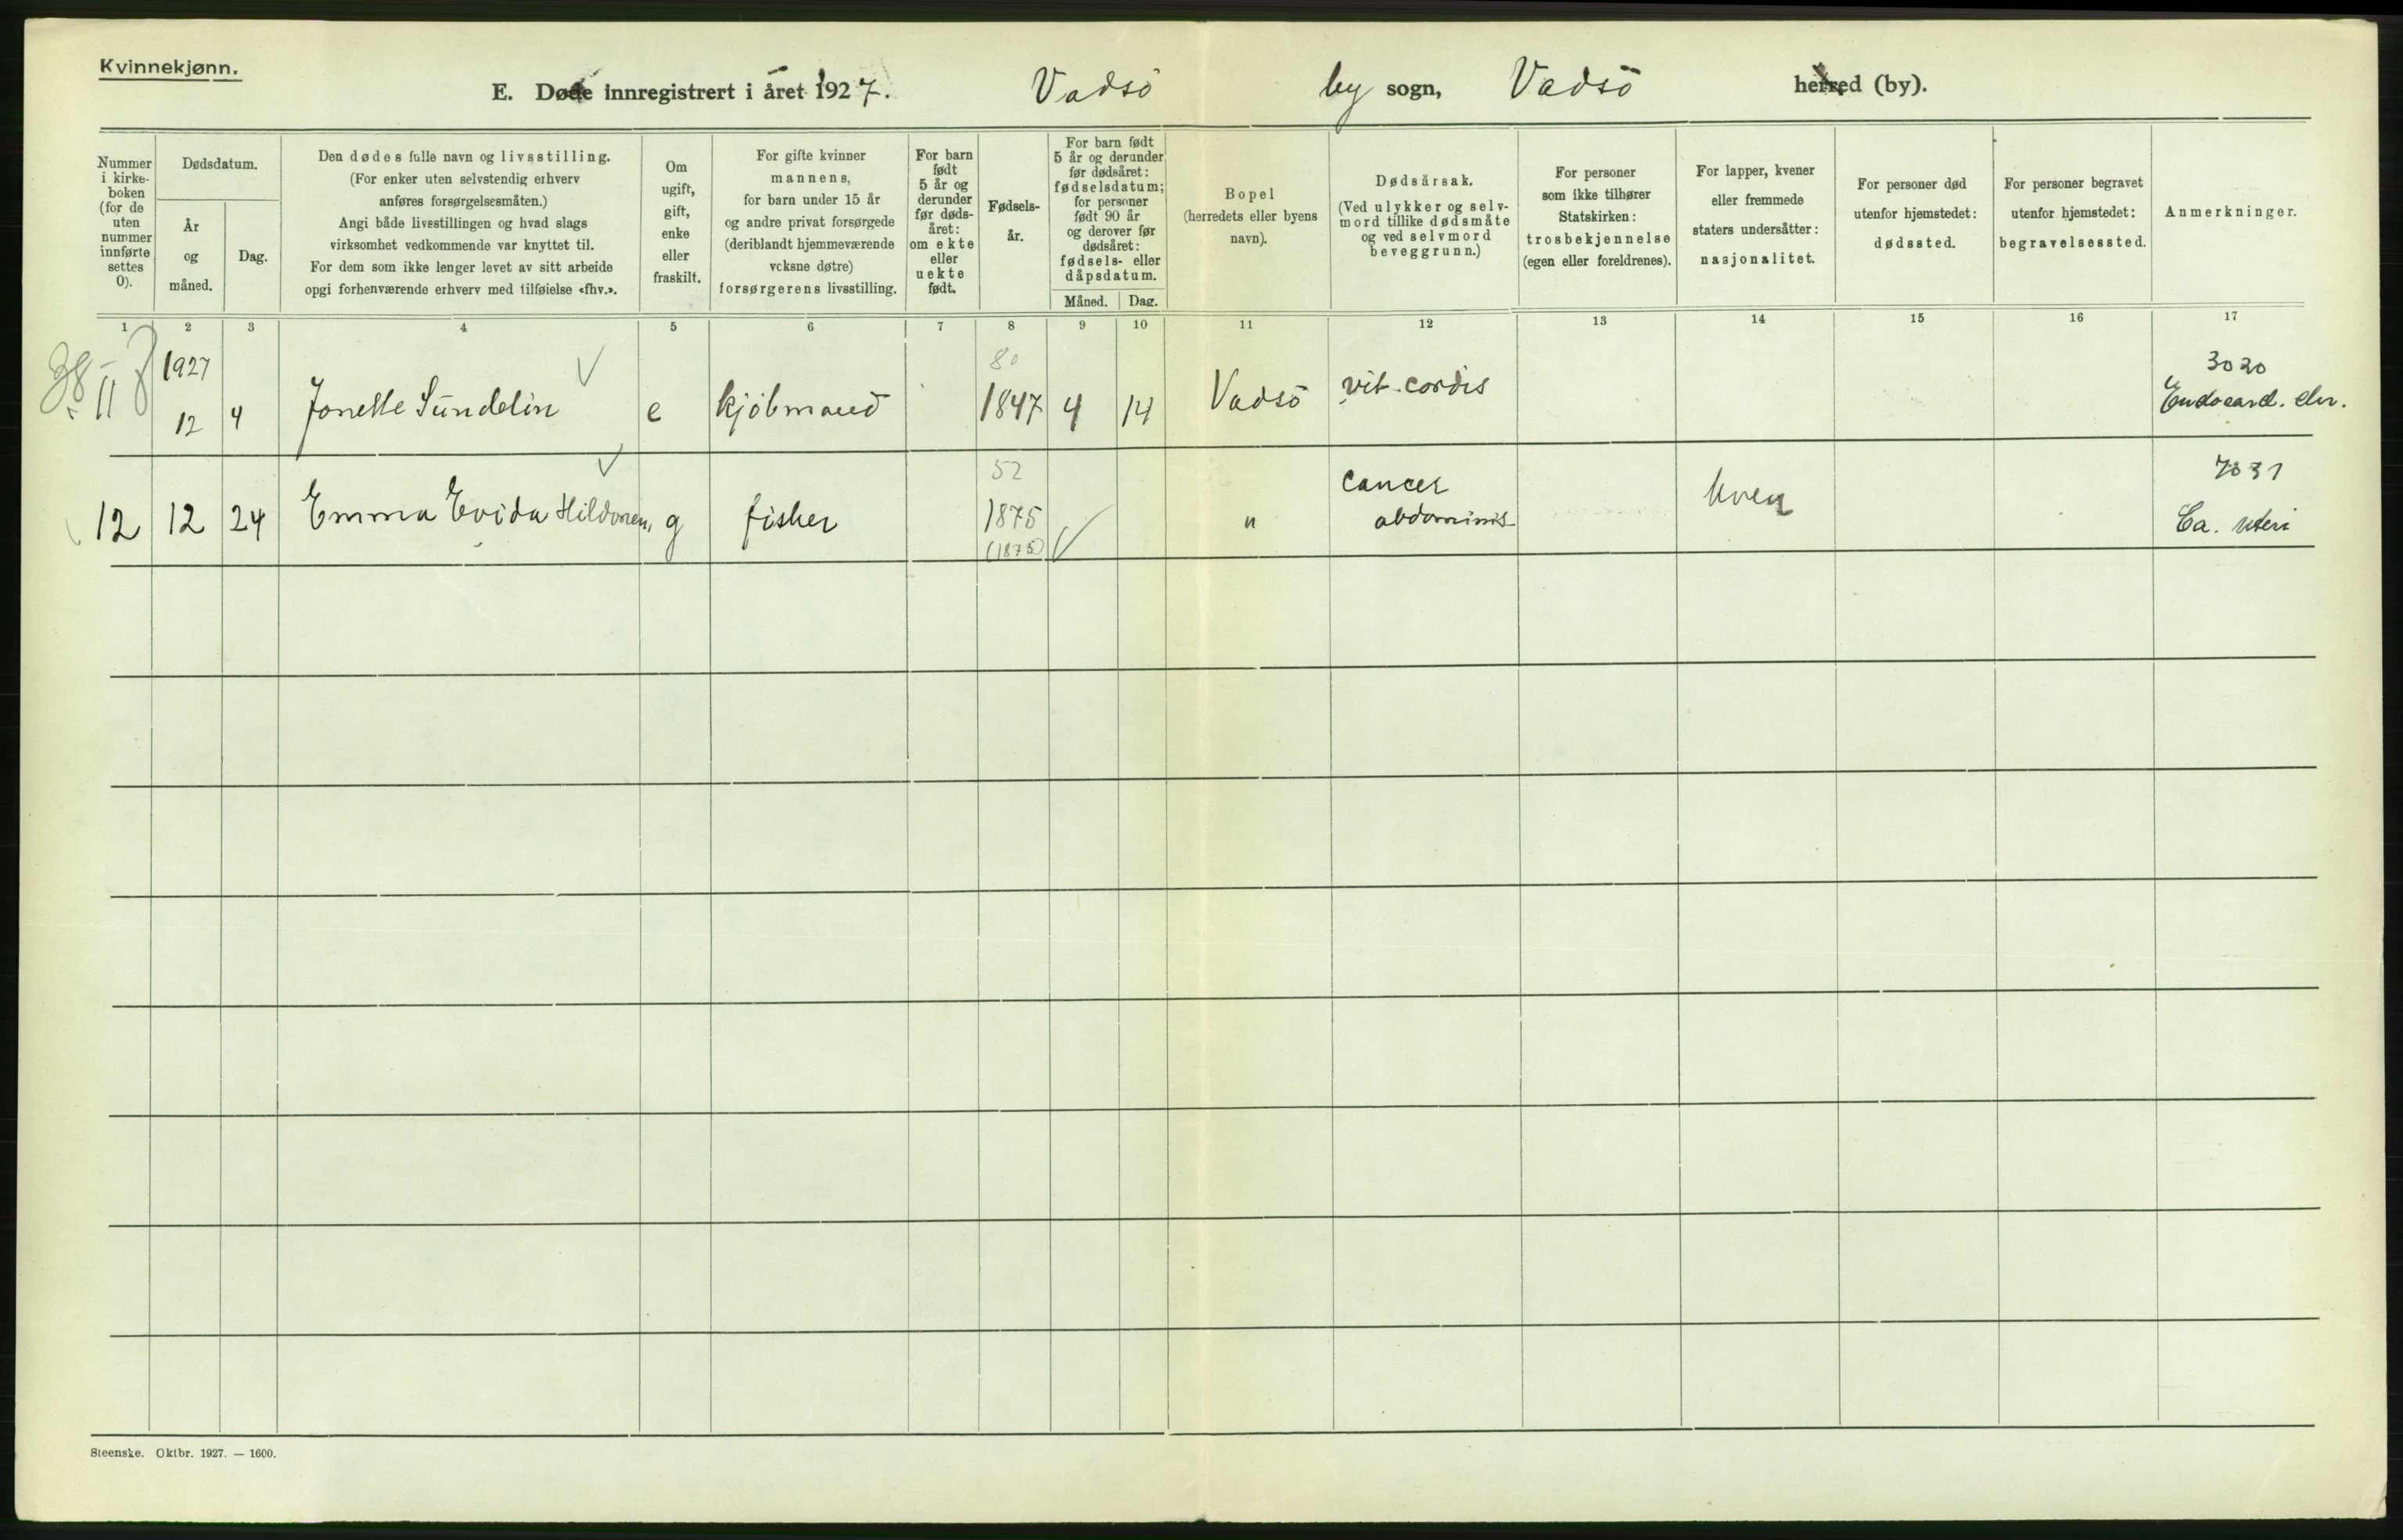 Kvinnekjønn.
E. Døde innregistrert i året 1927. Vadsö by sogn, Vadsö herred (by).
Nummer
i kirke-
boken
(for de
uten
nummer
innførte
settes
0).
Dødsdatum.
År
og
måned.
Dag.
Den dødes fulle navn og livsstilling.
(For enker uten selvstendig erhverv
anføres forsørgelsesmåten.)
Angi både livsstillingen og hvad slags
virksomhet vedkommende var knyttet til.
For dem som ikke lenger levet av sitt arbeide
opgi forhenværende erhverv med tilføielse «fhv.».
Om
ugift,
gift,
enke
eller
fraskilt.
For gifte kvinner
mannens,
for barn under 15 år
og andre privat forsørgede
(deriblandt hjemmeværende
vcksne døtre)
forsørgerens livsstilling.
For barn
født
5 år og
derunder
før døds-
året:
om ekte
eller
uekte
født.
Fødsels-
år.
For barn født
5 år og derunder
før dødsåret:
fødselsdatum;
for personer
født 90 år
og derover før
dødsåret:
fødsels- eller
dåpsdatum.
Måned. Dag.
Bopel
(herredets eller byens
navn).
Dødsårsak.
(Ved ulykker og selv-
mord tillike dødsmåte
og ved selvmord
beveggrunn.)
For personer
som ikke tilhører
Statskirken:
trosbekjennelse
(egen eller foreldrenes).
For lapper, kvener
eller fremmede
staters undersåtter:
nasjonalitet.
For personer død
utenfor hjemstedet:
dødssted.
For personer begravet
utenfor hjemstedet:
begravelsessted.
Anmerkninger.
1 2 3 4 5 6 7 8 9 10 11 12 13 14 15 16 17
1927 80 3020
11 12 4 Jonette Sundelin e kjöbmand 1847 4 14 Vadsö vit. cordis Endocard. chr.
52 7031
12 12 24 Emma Evida Hildonen, g fisker 1875 " cancer abdominis kven Ca. uteri
(1875)
Steenske. Oktbr. 1927. — 1600.